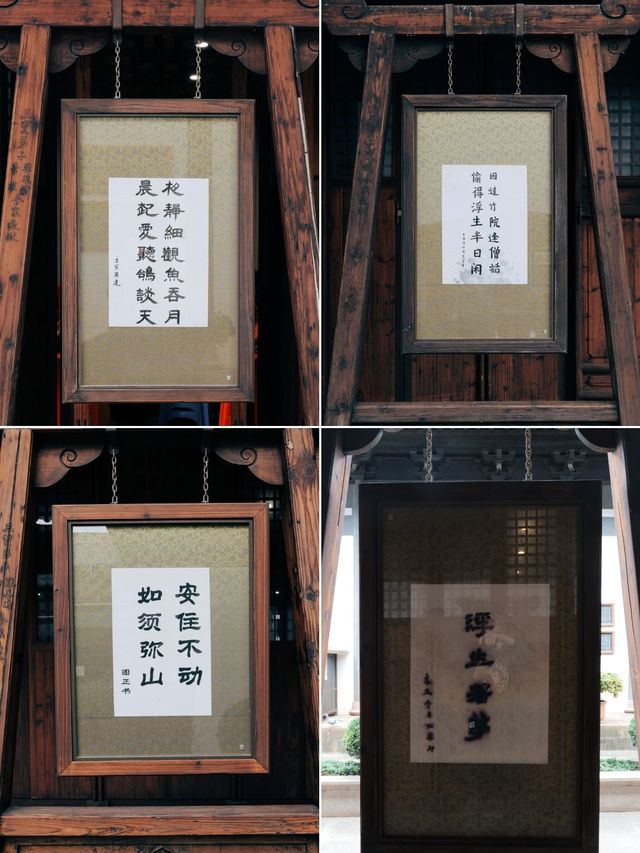 静細觀魚吞月
晨起愛聽鴿談天
因過竹院逢僧話
偷得浮生半日闲
安住不动
如须弥山
圆正书
浮生若梦